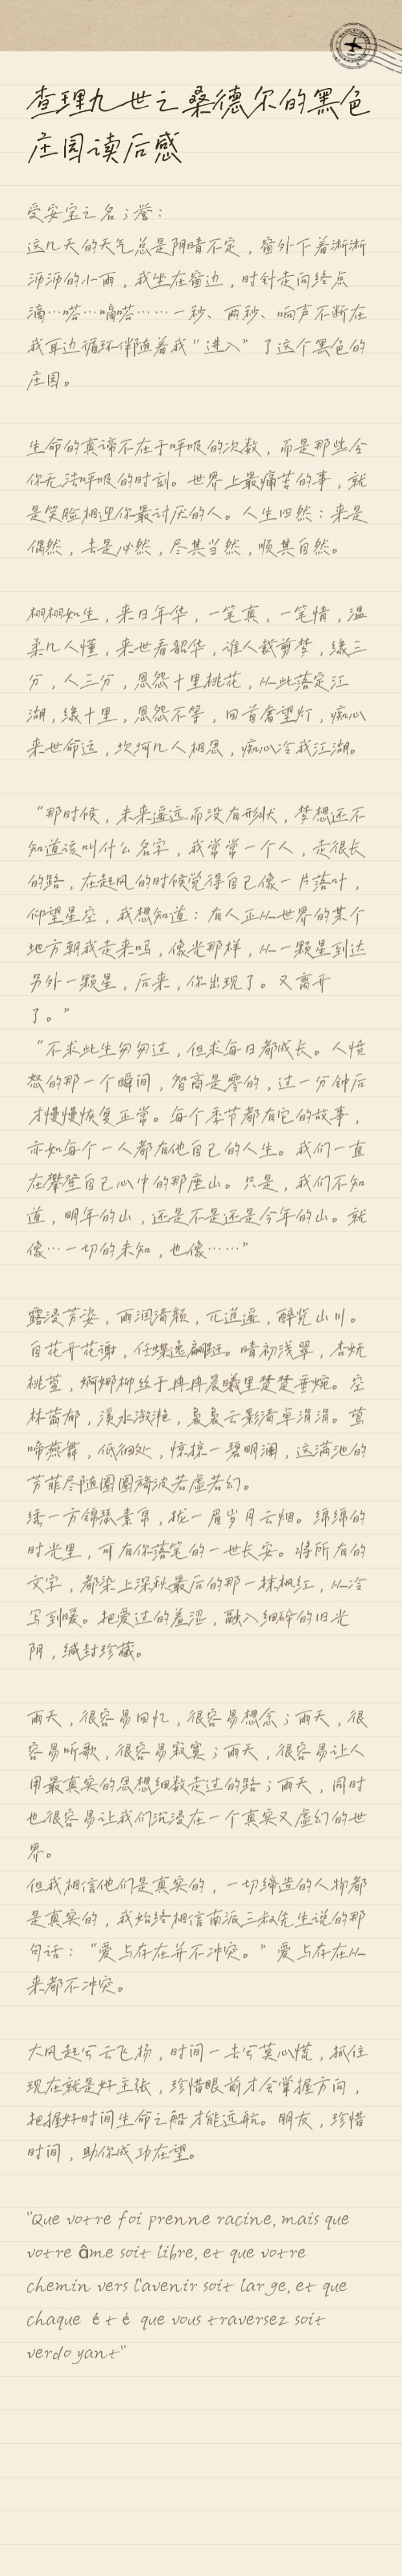 查理九世之桑德尔的黑色
庄园读后感
受安宝之名；誉：
这几天的天气总是阴晴不定，窗外下着淅淅
沥沥的小雨，我坐在窗边，时针走向终点
滴…嗒…嘀嗒……一秒、两秒、响声不断在
我耳边循环伴随着我“进入”了这个黑色的
庄园。
生命的真谛不在于呼吸的次数，而是那些令
你无法呼吸的时刻。世界上最痛苦的事，就
是笑脸相迎你最讨厌的人。人生四然：来是
偶然，去是必然，尽其当然，顺其自然。
栩栩如生，来日年华，一笔真，一笔情，温
柔几人懂，来世看韶华，谁人裁剪梦，缘三
分，人三分，恩怨十里桃花，从此落定江
湖，缘十里，恩怨不等，回首奢望灯，痴心
来世命运，坎坷几人相思，痴心冷我江湖。
“那时候，未来遥远而没有形状，梦想还不
知道该叫什么名字，我常常一个人，走很长
的路，在起风的时候觉得自己像一片落叶，
仰望星空，我想知道：有人正从世界的某个
地方朝我走来吗，像光那样，从一颗星到达
另外一颗星，后来，你出现了。又离开
了。”
“不求此生匆匆过，但求每日都成长。人愤
怒的那一个瞬间，智商是零的，过一分钟后
才慢慢恢复正常。每个季节都有它的故事，
亦如每个一人都有他自己的人生。我们一直
在攀登自己心中的那座山。只是，我们不知
道，明年的山，还是不是还是今年的山。就
像…一切的未知，也像……”
露浸芳姿，雨润清颜，兀逍遥，醉览山川。
自花开花谢，任蝶逸翩跹。晴初浅翠，杏妩
桃萱，婀娜柳丝于冉冉晨曦里楚楚垂婉。空
林蓊郁，溪水潋滟，袅袅云影清卓涓涓。莺
啼燕舞，低徊处，惊掠一碧明澜，这满池的
芳菲尽随圈圈漪波若虚若幻。
绣一方锦瑟素帛，拢一眉岁月云烟。绵绵的
时光里，可有你落笔的一世长安。将所有的
文字，都染上深秋最后的那一抹枫红，从冷
写到暖。把爱过的羞涩，融入细碎的旧光
阴，缄封珍藏。
雨天，很容易回忆，很容易想念；雨天，很
容易听歌，很容易寂寞；雨天，很容易让人
用最真实的思想细数走过的路；雨天，同时
也很容易让我们沉浸在一个真实又虚幻的世
界。
但我相信他们是真实的，一切缔造的人物都
是真实的，我始终相信南派三叔先生说的那
句话：“爱与存在并不冲突。”爱与存在从
来都不冲突。
大风起兮云飞扬，时间一去兮莫心慌，抓住
现在就是好主张，珍惜眼前才会掌握方向，
把握好时间生命之船才能远航。朋友，珍惜
时间，助你成功在望。
"Que votre foi prenne racine, mais que
votre âme soit libre, et que votre
chemin vers l'avenir soit large, et que
chaque été que vous traversez soit
verdoyant"